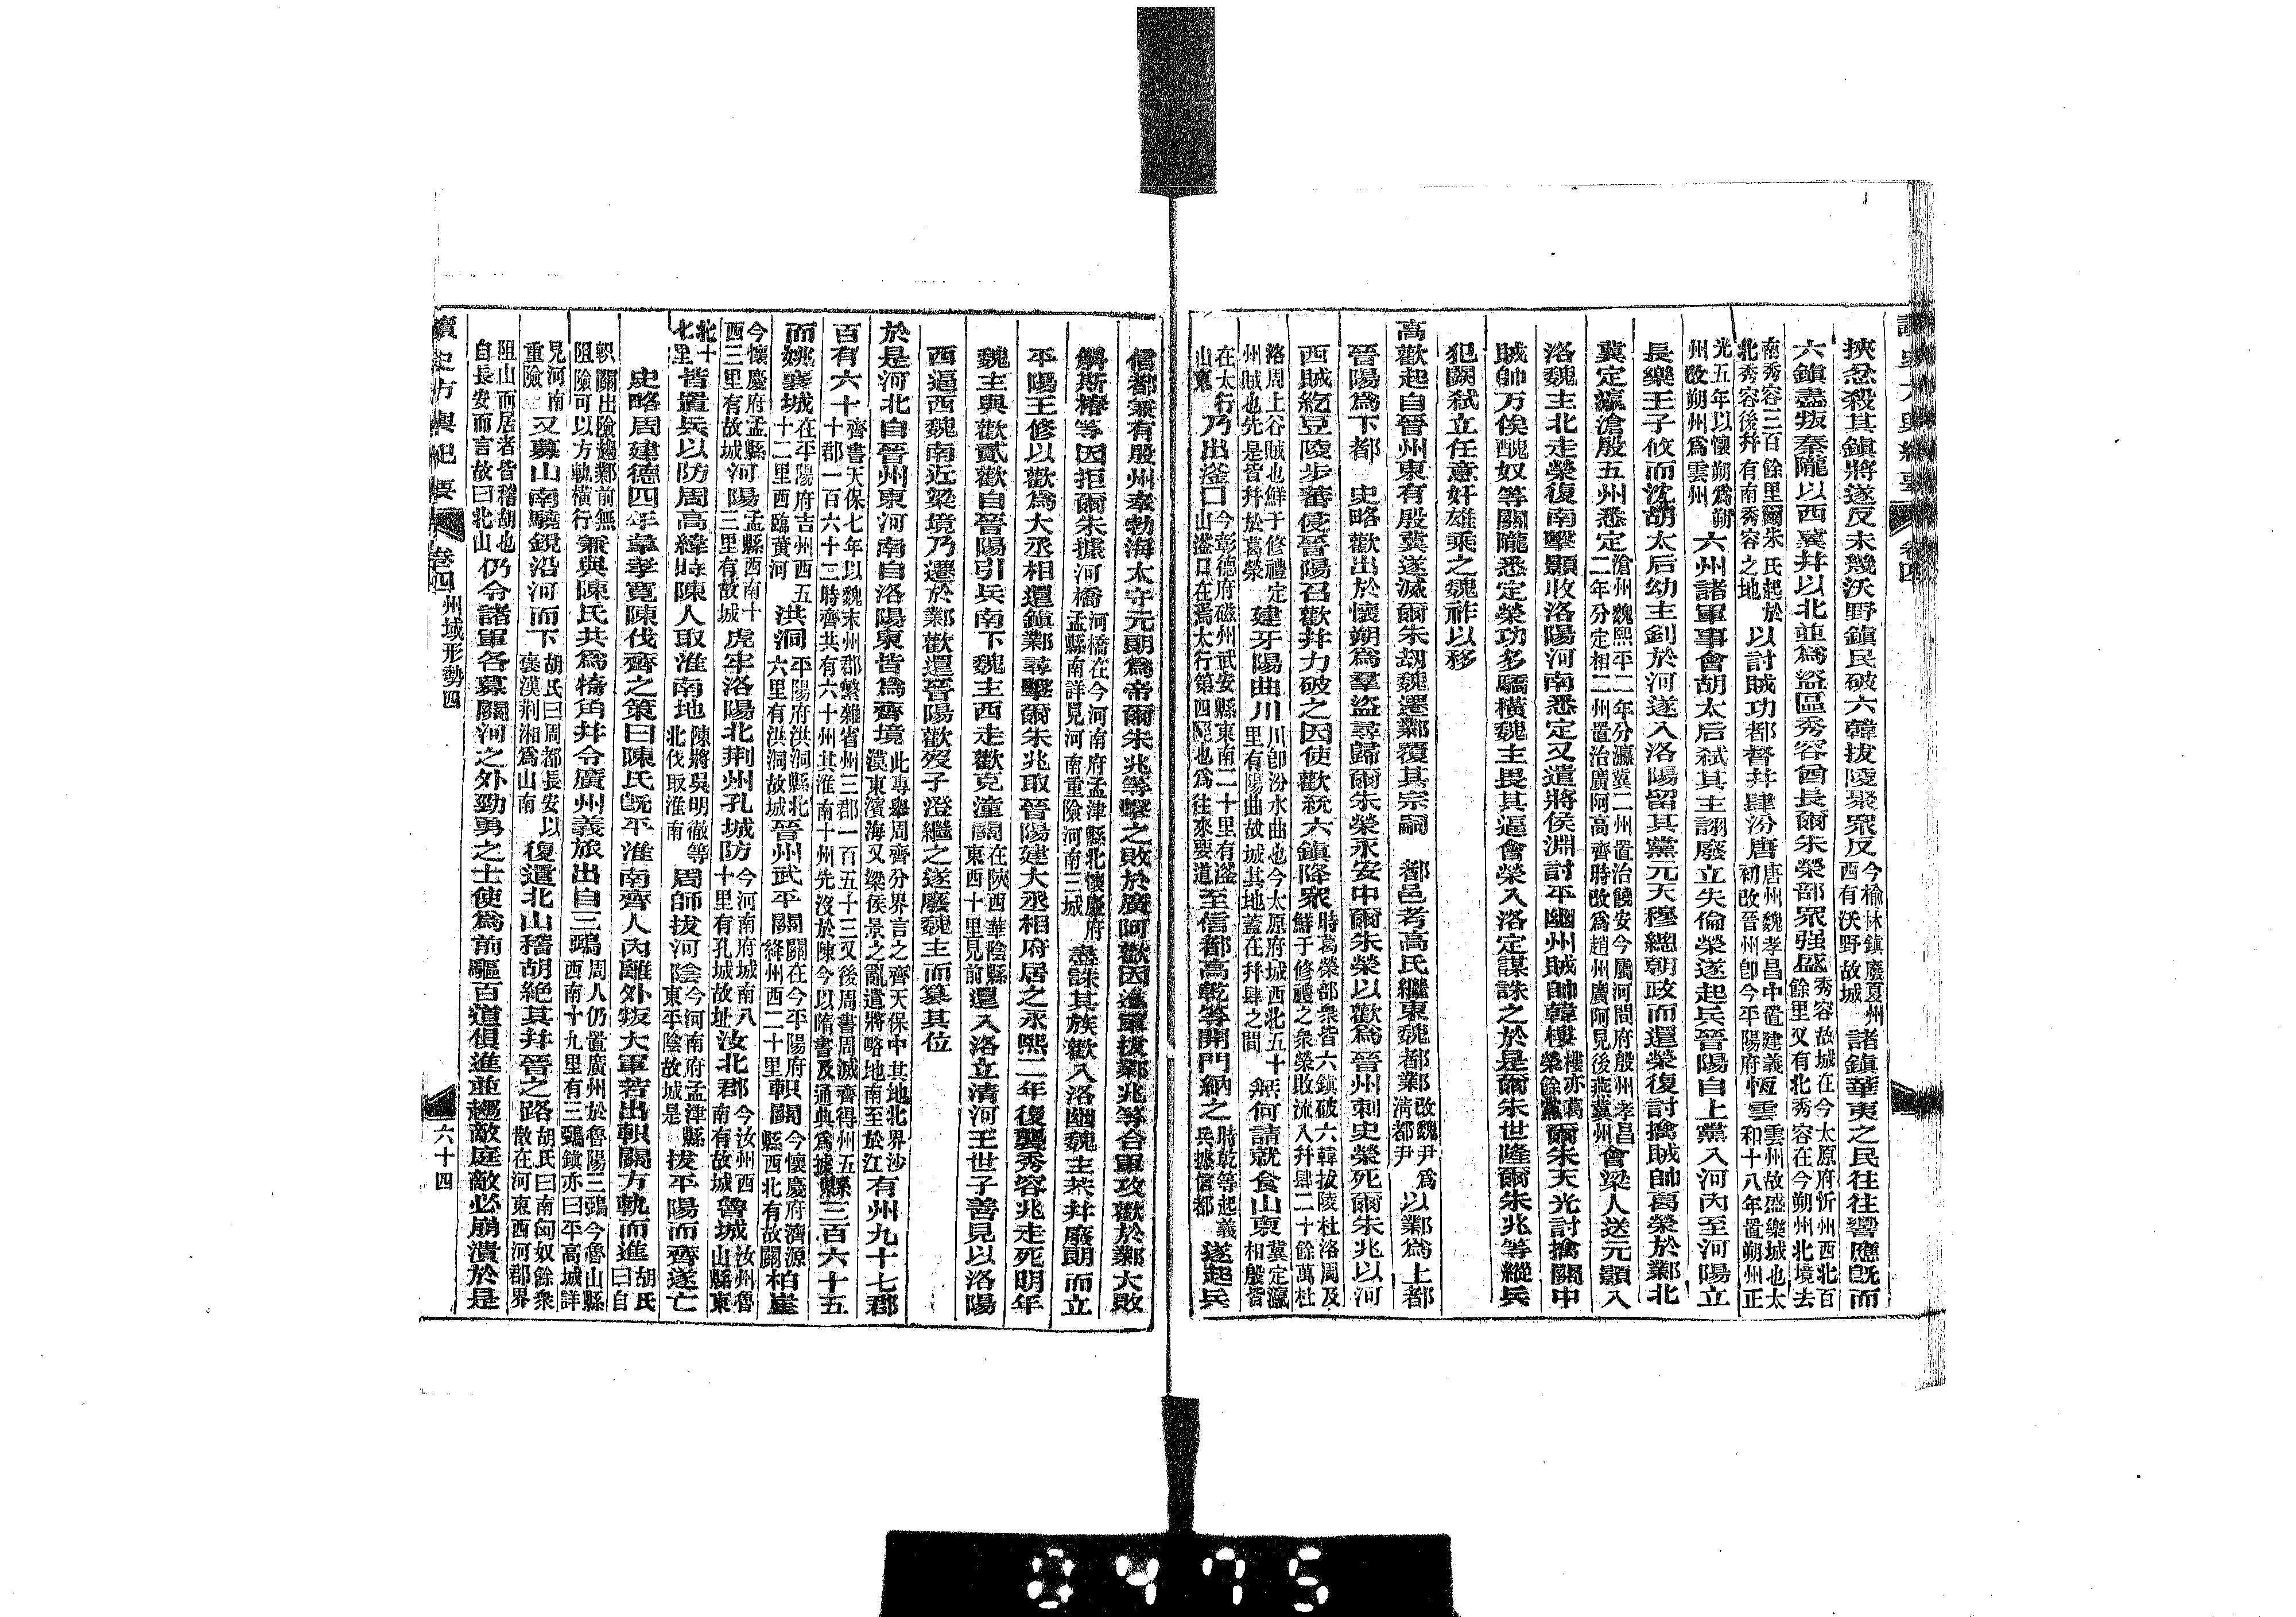 讀史方輿紀要 卷四
挾忿殺其鎮將遂反未幾沃野鎮民破六韓拔陵聚眾反今榆林鎮廢夏州西有沃野故城諸鎮華夷之民往往響應既而
六鎮盡叛秦隴以西冀幷以北並為盜區秀容酋長爾朱榮部眾強盛秀容故城在今太原府忻州西北百餘里又有北秀容在今朔州北境去
南秀容三百餘里爾朱氏起於北秀容後幷有南秀容之地以討賊功都督幷肆汾唐唐州魏孝昌中置建義初改晉州卽今平陽府恆雲雲州故盛樂城也太和十八年置朔州正
光五年以懷朔為朔州改朔州為雲州六州諸軍事會胡太后弒其主詡廢立失倫榮遂起兵晉陽自上黨入河內至河陽立
長樂王子攸而沈胡太后幼主釗於河遂入洛陽留其黨元天穆總朝政而還榮復討擒賊帥葛榮於鄴北
冀定瀛滄殷五州悉定滄州魏熙平二年分瀛冀二州置治饒安今屬河間府殷州孝昌二年分定相二州置治廣阿高齊時改為趙州廣阿見後燕冀州會梁人送元顥入
洛魏主北走榮復南擊顥收洛陽河南悉定又遣將侯淵討平幽州賊帥韓樓樓亦葛榮餘黨爾朱天光討擒關中
賊帥万俟醜奴等關隴悉定榮功多驕橫魏主畏其逼會榮入洛定謀誅之於是爾朱世隆爾朱兆等縱兵
犯闕弒立任意奸雄乘之魏祚以移
高歡起自晉州東有殷冀遂滅爾朱劫魏遷鄴覆其宗嗣 都邑考高氏繼東魏都鄴改魏尹為淸都尹以鄴為上都
晉陽為下都 史略歡出於懷朔為羣盜尋歸爾朱榮永安中爾朱榮以歡為晉州刺史榮死爾朱兆以河
西賊紇豆陵步蕃侵晉陽召歡幷力破之因使歡統六鎮降眾時葛榮部眾皆六鎮破六韓拔陵杜洛周及鮮于修禮之眾榮敗流入幷肆二十餘萬杜
洛周上谷賊也鮮于修禮定州賊也先是皆幷於葛榮建牙陽曲川川卽汾水曲也今太原府城西北五十里有陽曲故城其地蓋在幷肆之間無何請就食山東冀定瀛相殷皆
在太行山東乃出滏口今彰德府磁州武安縣東南二十里有滏山滏口在焉太行第四陘也為往來要道至信都高乾等開門納之時乾等起義兵據信都遂起兵
信都兼有殷州奉勃海太守元朗為帝爾朱兆等擊之敗於廣阿歡因進軍拔鄴兆等合軍攻歡於鄴大敗
斛斯椿等因拒爾朱據河橋河橋在今河南府孟津縣北懷慶府孟縣南詳見河南重險河南三城盡誅其族歡入洛幽魏主恭幷廢朗而立
平陽王修以歡為大丞相還鎮鄴尋擊爾朱兆取晉陽建大丞相府居之永熙二年復襲秀容兆走死明年
魏主與歡貳歡自晉陽引兵南下魏主西走歡克潼關在陝西華陰縣東西十里見前還入洛立清河王世子善見以洛陽
西逼西魏南近梁境乃遷於鄴歡還晉陽歡歿子澄繼之遂廢魏主而篡其位
於是河北自晉州東河南自洛陽東皆為齊境此專舉周齊分界言之齊天保中其地北界沙漠東濱海又梁侯景之亂遣將略地南至於江有州九十七郡
百有六十齊書天保七年以魏末州郡繁雜省州三郡一百五十三又後周書周滅齊得州五十郡一百六十二時齊共有六十州其淮南十州先沒於陳今以隋書及通典為據縣三百六十五
而姚襄城在平陽府吉州西五十二里西臨黃河洪洞平陽府洪洞縣北六里有洪洞故城晉州武平關關在今平陽府絳州西二十里軹關今懷慶府濟源縣西北有故關柏崖
今懷慶府孟縣西三里有故城河陽孟縣西南十三里有故城虎牢洛陽北荆州孔城防今河南府城南八十里有孔城故址汝北郡今汝州西南有故城魯城汝州魯山縣東
北十七里皆置兵以防周高緯時陳人取淮南地陳將吳明徹等北伐取淮南周師拔河陰今河南府孟津縣東平陰故城是拔平陽而齊遂亡
史略周建德四年韋孝寬陳伐齊之策曰陳氏旣平淮南齊人內離外叛大軍若出軹關方軌而進胡氏曰自
軹關出險趨鄴前無阻險可以方軌橫行兼與陳氏共為犄角幷令廣州義旅出自三鵶周人仍置廣州於魯陽三鵶今魯山縣西南十九里有三鵶鎮亦曰平高城詳
見河南重險又募山南驍銳沿河而下胡氏曰周都長安以褒漢荆湘為山南復遣北山稽胡絕其幷晉之路胡氏曰南匈奴餘眾散在河東西河郡界
阻山而居者皆稽胡也自長安而言故曰北山仍令諸軍各募關河之外勁勇之士使為前驅百道俱進並趨敵庭敵必崩潰於是
讀史方輿紀要 卷四 州域形勢四 六十四
0475